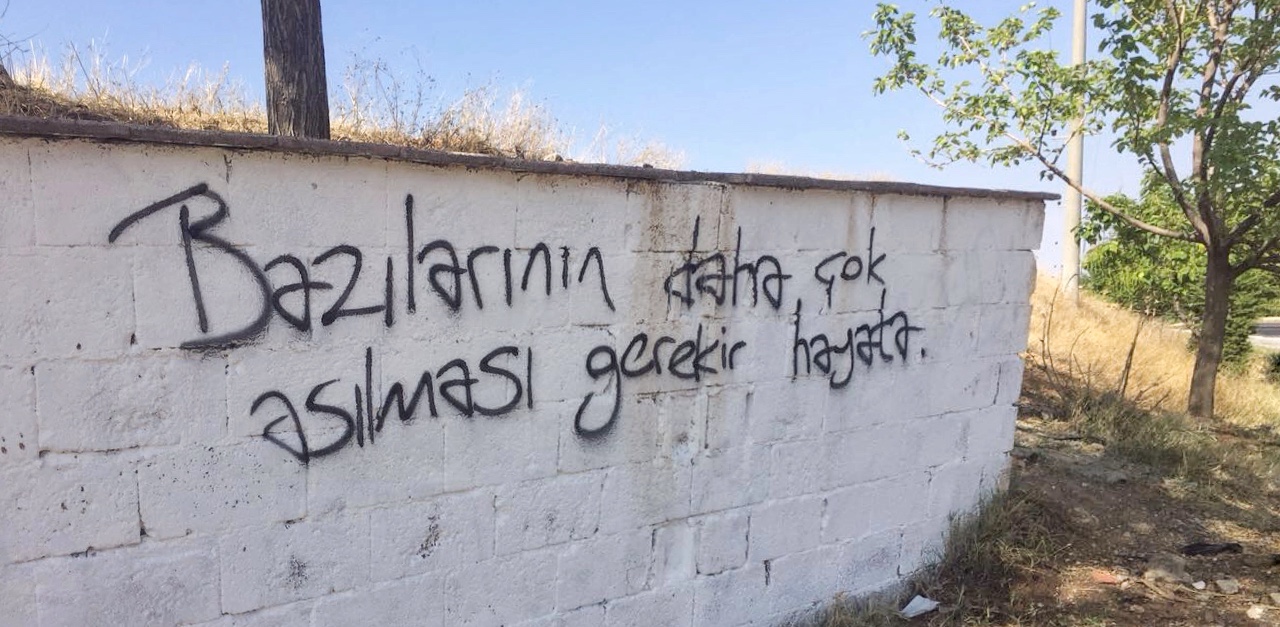 Bazılarının daha çok
asılması gerekir hayata.